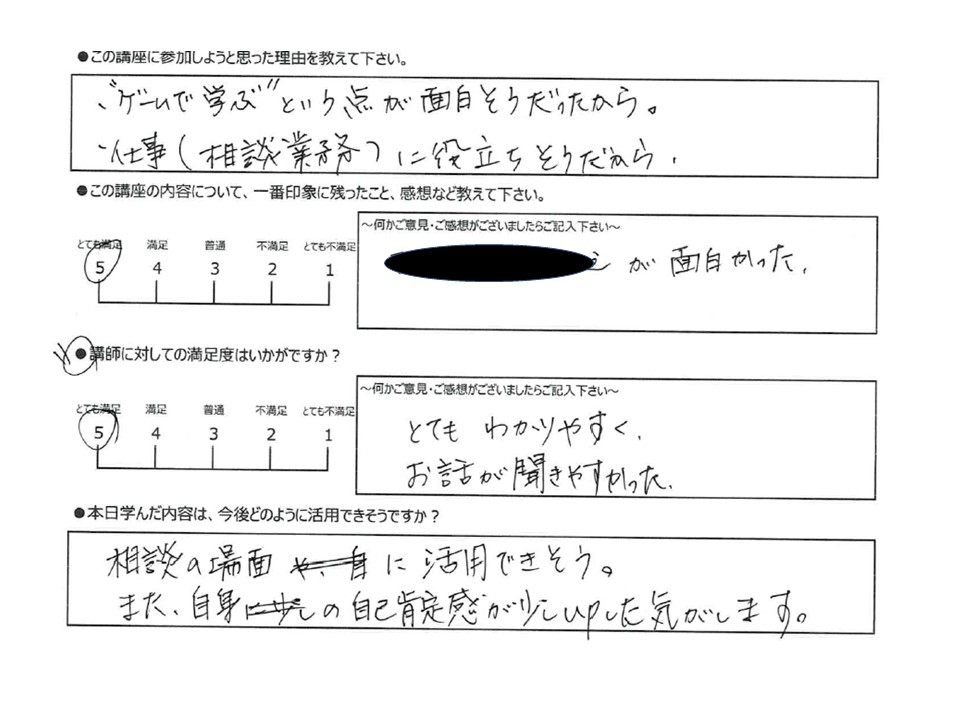 ●この講座に参加しようと思った理由を教えて下さい。
・“ゲームで学ぶ”という点が面白そうだったから。
・仕事(相談業務)に役立ちそうだから.
●この講座の内容について、一番印象に残ったこと、感想など教えて下さい。
とても満足 満足 普通 不満足 とても不満足
5 4 3 2 1
～何かご意見・ご感想がございましたらご記入下さい～
が面白かった.
●講師に対しての満足度はいかがですか？
とても満足 満足 普通 不満足 とても不満足
5 4 3 2 1
～何かご意見・ご感想がございましたらご記入下さい～
とても わかりやすく.
お話が聞きやすかった.
●本日学んだ内容は、今後どのように活用できそうですか？
相談の場面に活用できそう。
また、自身の自己肯定感が少しupした気がします。